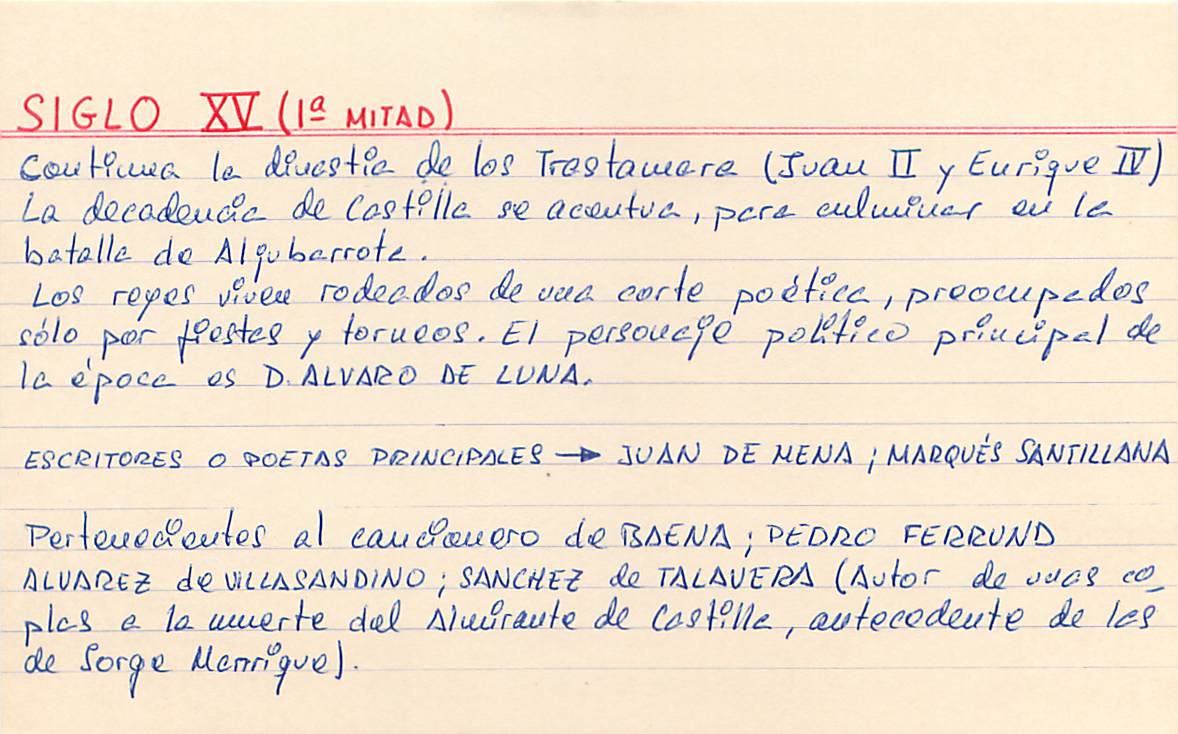 SIGLO XV (1ª MITAD)
Continua la dinastia de los Trastamara (Juan II y Enrique IV)
La decadencia de Castilla se acentua, para culminar en la
batalla de Aljubarrota.
Los reyes viven rodeados de una corte poética, preocupados
sólo por fiestas y torneos. El personaje político principal de
la época es D. ALVARO DE LUNA.
ESCRITORES O POETAS PRINCIPALES → JUAN DE MENA; MARQUÉS SANTILLANA
Pertenecientes al cancionero de BAENA; PEDRO FERRUND
ALVAREZ de VILLASANDINO; SANCHEZ de TALAVERA (Autor de unas co_
plas a la muerte del Almirante de Castilla, antecedente de las
de Jorge Manrique).